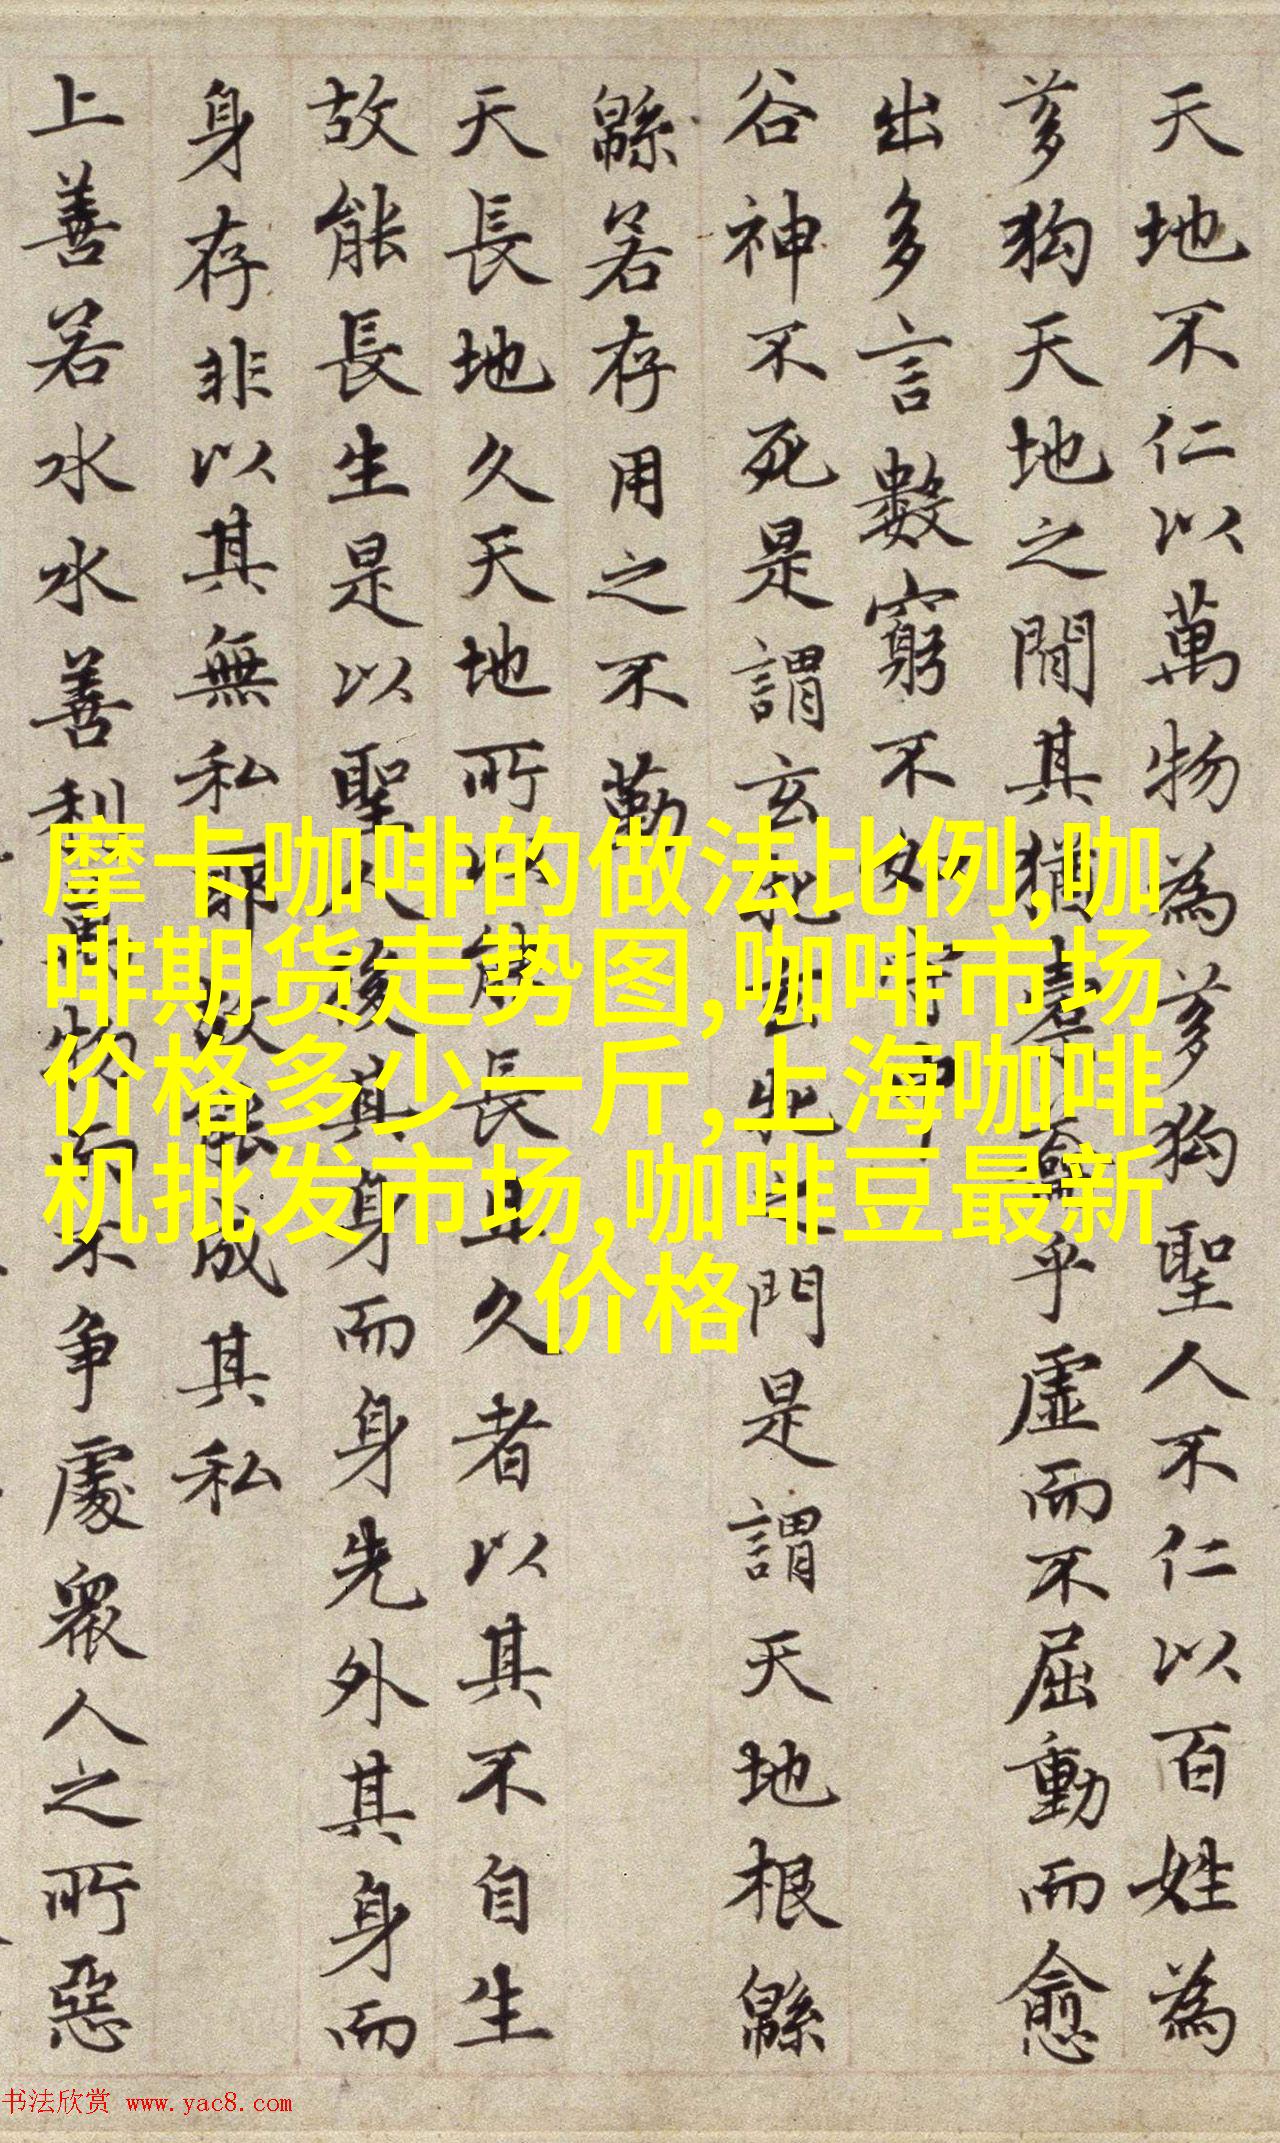 天地不仁以萬物為芻狗聖人不仁以百姓為
芻狗天地之閒其猶橐籥乎虛而不屈動而愈
出多言數窮不如守中
谷神不死是謂玄牝玄牝之門是謂天地根緜
緜若存用之不勤
天長地久天地所以能長且久者以其不自生
故能長生是以聖人後其身而身先外其身而
身存非以其無私耶故能成其私
上善若水水善利萬物而不争處衆人之所惡
摩卡咖啡的做法比例,咖
啡期货走势图,咖啡市场
价格多少一斤,上海咖啡
机批发市场,咖啡豆最新
价格
书法欣赏 www.yac8.com